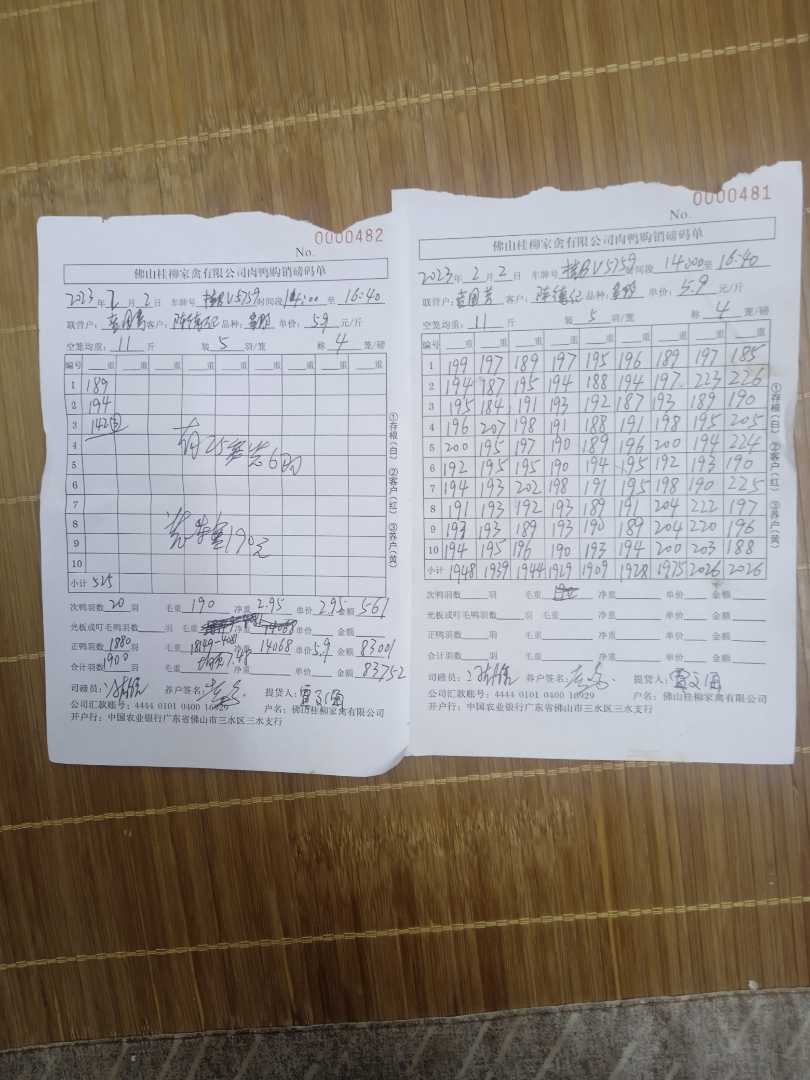 0000482
No.
佛山桂柳家禽有限公司肉鸭购销磅码单
2023年2月2日 车牌号 V5759 时间段 14:00至 16:40
联营户: 客户: 品种: 单价: 5.9 元/斤
空笼均重: 11 斤 装 5 羽/笼 称 4 笼/磅
编号 重 重 重 重 重 重 重 重 重
1 189
2 194
3 142
4
5
6
7
8
9
10
小计 525
190元
①存根(白) ②客户(红) ③养户(黄)
次鸭羽数 20 羽 毛重 190 净重 2.95 单价 2.95 金额 561
光板或叮毛鸭羽数 羽 毛重 净重 单价 金额
正鸭羽数 1880 羽 毛重 18149-4081 净重 14068 单价 5.9 金额 83001
合计羽数 1900 羽 毛重 均重7.48 净重 单价 金额 83752
司磅员: 养户签名: 提货人:
公司汇款账号: 4444 0101 0400 10929 户名: 佛山桂柳家禽有限公司
开户行: 中国农业银行广东省佛山市三水区三水支行
0000481
No.
佛山桂柳家禽有限公司肉鸭购销磅码单
2023年2月2日 车牌号 V5759 时间段 14:00至 16:40
联营户: 客户: 品种: 单价: 5.9 元/斤
空笼均重: 11 斤 装 5 羽/笼 称 4 笼/磅
编号 重 重 重 重 重 重 重 重 重
1 199 197 189 197 195 196 189 197 185
2 194 187 195 194 188 194 197 223 226
3 195 184 191 193 192 187 193 189 190
4 196 207 198 191 188 191 198 195 205
5 200 195 197 190 189 196 200 194 224
6 192 195 195 190 194 195 192 193 190
7 194 193 202 198 191 195 198 190 225
8 191 193 192 193 189 191 204 222 197
9 193 193 189 193 190 189 204 220 196
10 194 195 196 190 193 194 200 203 188
小计 1948 1939 1944 1929 1909 1928 1975 2026 2026
①存根(白) ②客户(红) ③养户(黄)
次鸭羽数 羽 毛重 净重 单价 金额
光板或叮毛鸭羽数 羽 毛重 净重 单价 金额
正鸭羽数 羽 毛重 净重 单价 金额
合计羽数 羽 毛重 净重 单价 金额
司磅员: 养户签名: 提货人:
公司汇款账号: 4444 0101 0400 10929 户名: 佛山桂柳家禽有限公司
开户行: 中国农业银行广东省佛山市三水区三水支行